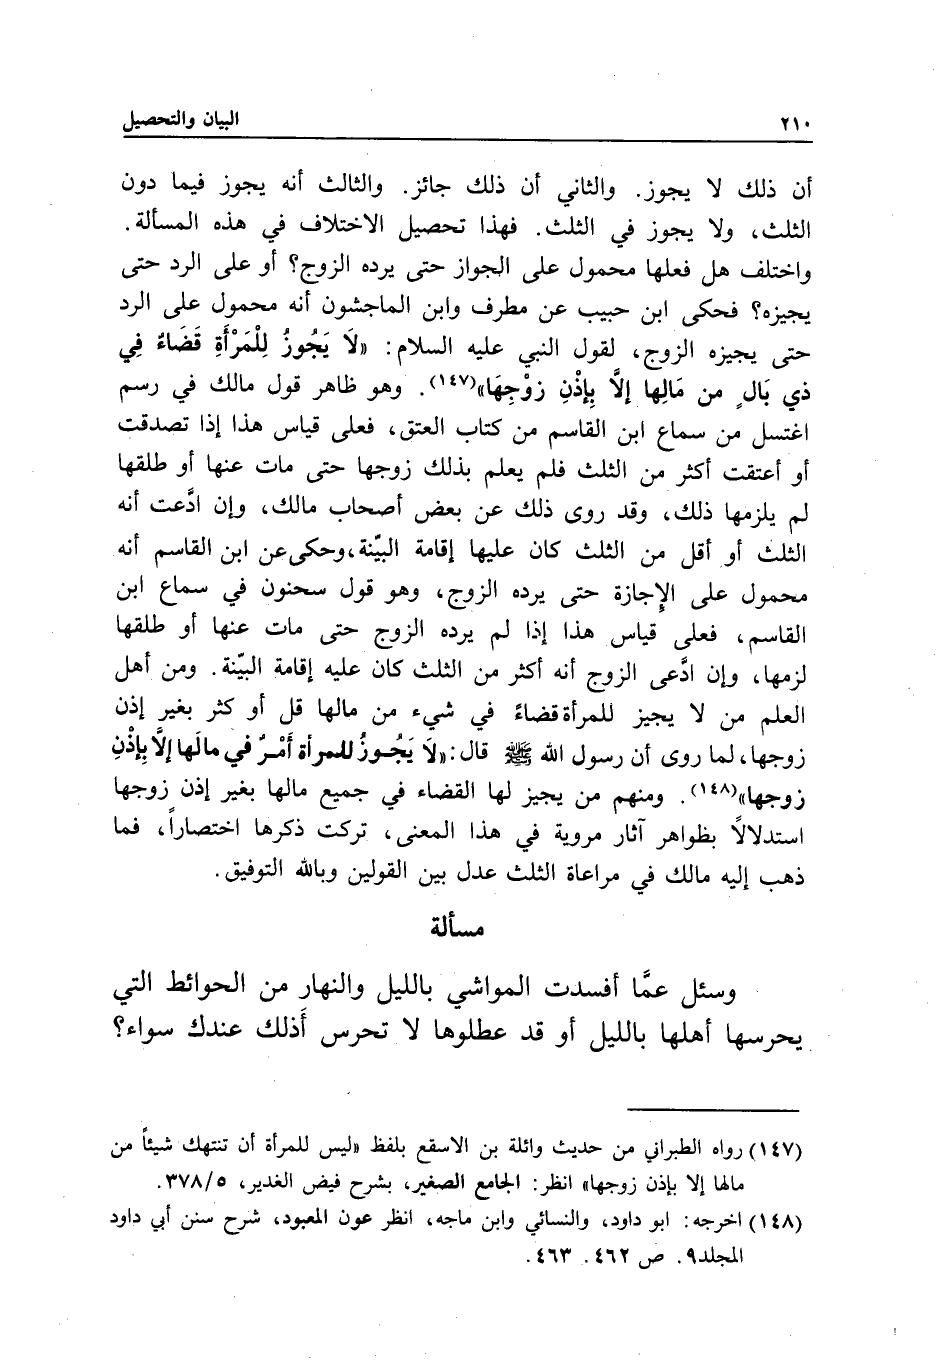 ٢١٠ البيان والتحصيل
أن ذلك لا يجوز. والثاني أن ذلك جائز. والثالث أنه يجوز فيما دون
الثلث، ولا يجوز في الثلث. فهذا تحصيل الاختلاف في هذه المسألة.
واختلف هل فعلها محمول على الجواز حتى يرده الزوج؟ أو على الرد حتى
يجيزه؟ فحكى ابن حبيب عن مطرف وابن الماجشون أنه محمول على الرد
حتى يجيزه الزوج، لقول النبي عليه السلام: «لاَ يَجُوزُ لِلْمَرْأَةِ قَضَاءٌ فِي
ذي بَالٍ من مَالِها إلاَّ بِإذْنِ زوْجِهَا»(١٤٧). وهو ظاهر قول مالك في رسم
اغتسل من سماع ابن القاسم من كتاب العتق، فعلى قياس هذا إذا تصدقت
أو أعتقت أكثر من الثلث فلم يعلم بذلك زوجها حتى مات عنها أو طلقها
لم يلزمها ذلك، وقد روى ذلك عن بعض أصحاب مالك، وإن ادَّعت أنه
الثلث أو أقل من الثلث كان عليها إقامة البيّنة، وحكى عن ابن القاسم أنه
محمول على الإجازة حتى يرده الزوج، وهو قول سحنون في سماع ابن
القاسم، فعلى قياس هذا إذا لم يرده الزوج حتى مات عنها أو طلقها
لزمها، وإن ادَّعى الزوج أنه أكثر من الثلث كان عليه إقامة البيّنة. ومن أهل
العلم من لا يجيز للمرأة قضاءً في شيء من مالها قل أو كثر بغير إذن
زوجها، لما روى أن رسول الله ﷺ قال: «لاَ يَجُوزُ للمرأة أَمْرٌ في مالَها إلاَّ بِإذْنِ
زوجها»(١٤٨). ومنهم من يجيز لها القضاء في جميع مالها بغير إذن زوجها
استدلالاً بظواهر آثار مروية في هذا المعنى، تركت ذكرها اختصاراً، فما
ذهب إليه مالك في مراعاة الثلث عدل بين القولين وبالله التوفيق.
مسألة
وسئل عمَّا أفسدت المواشي بالليل والنهار من الحوائط التي
يحرسها أهلها بالليل أو قد عطلوها لا تحرس أَذلك عندك سواء؟
(١٤٧) رواه الطبراني من حديث وائلة بن الاسقع بلفظ «ليس للمرأة أن تنتهك شيئاً من
مالها إلا بإذن زوجها» انظر: الجامع الصغير، بشرح فيض الغدير، ٣٧٨/٥.
(١٤٨) اخرجه: ابو داود، والنسائي وابن ماجه، انظر عون المعبود، شرح سنن أبي داود
المجلد٩. ص ٤٦٢. ٤٦٣.